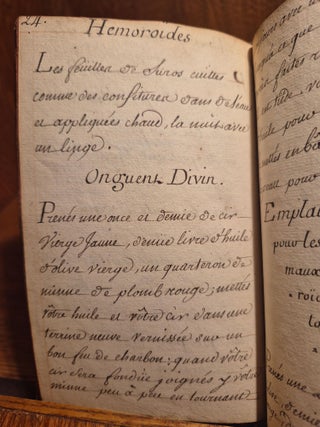 24.
Hemoroides
Les feuilles de Suros cuittes
comme des confitures dans de l'eau
et appliquées chaud, la nuit avec
un linge.
Onguent Divin.
Prenés une once et demie de cir
Vierge Jaune, demie livre d'huile
d'olive vierge, un quarteron de
minne de plomb rouge; mettes
vôtre huile et vôtre cir dans une
terrine neuve vernissée sur un
bon feu de charbon; quand vôtre
cir sera fondüe joignés y vôtre
minne peu à peu en tournant
Emplat
pour les
maux
roïd